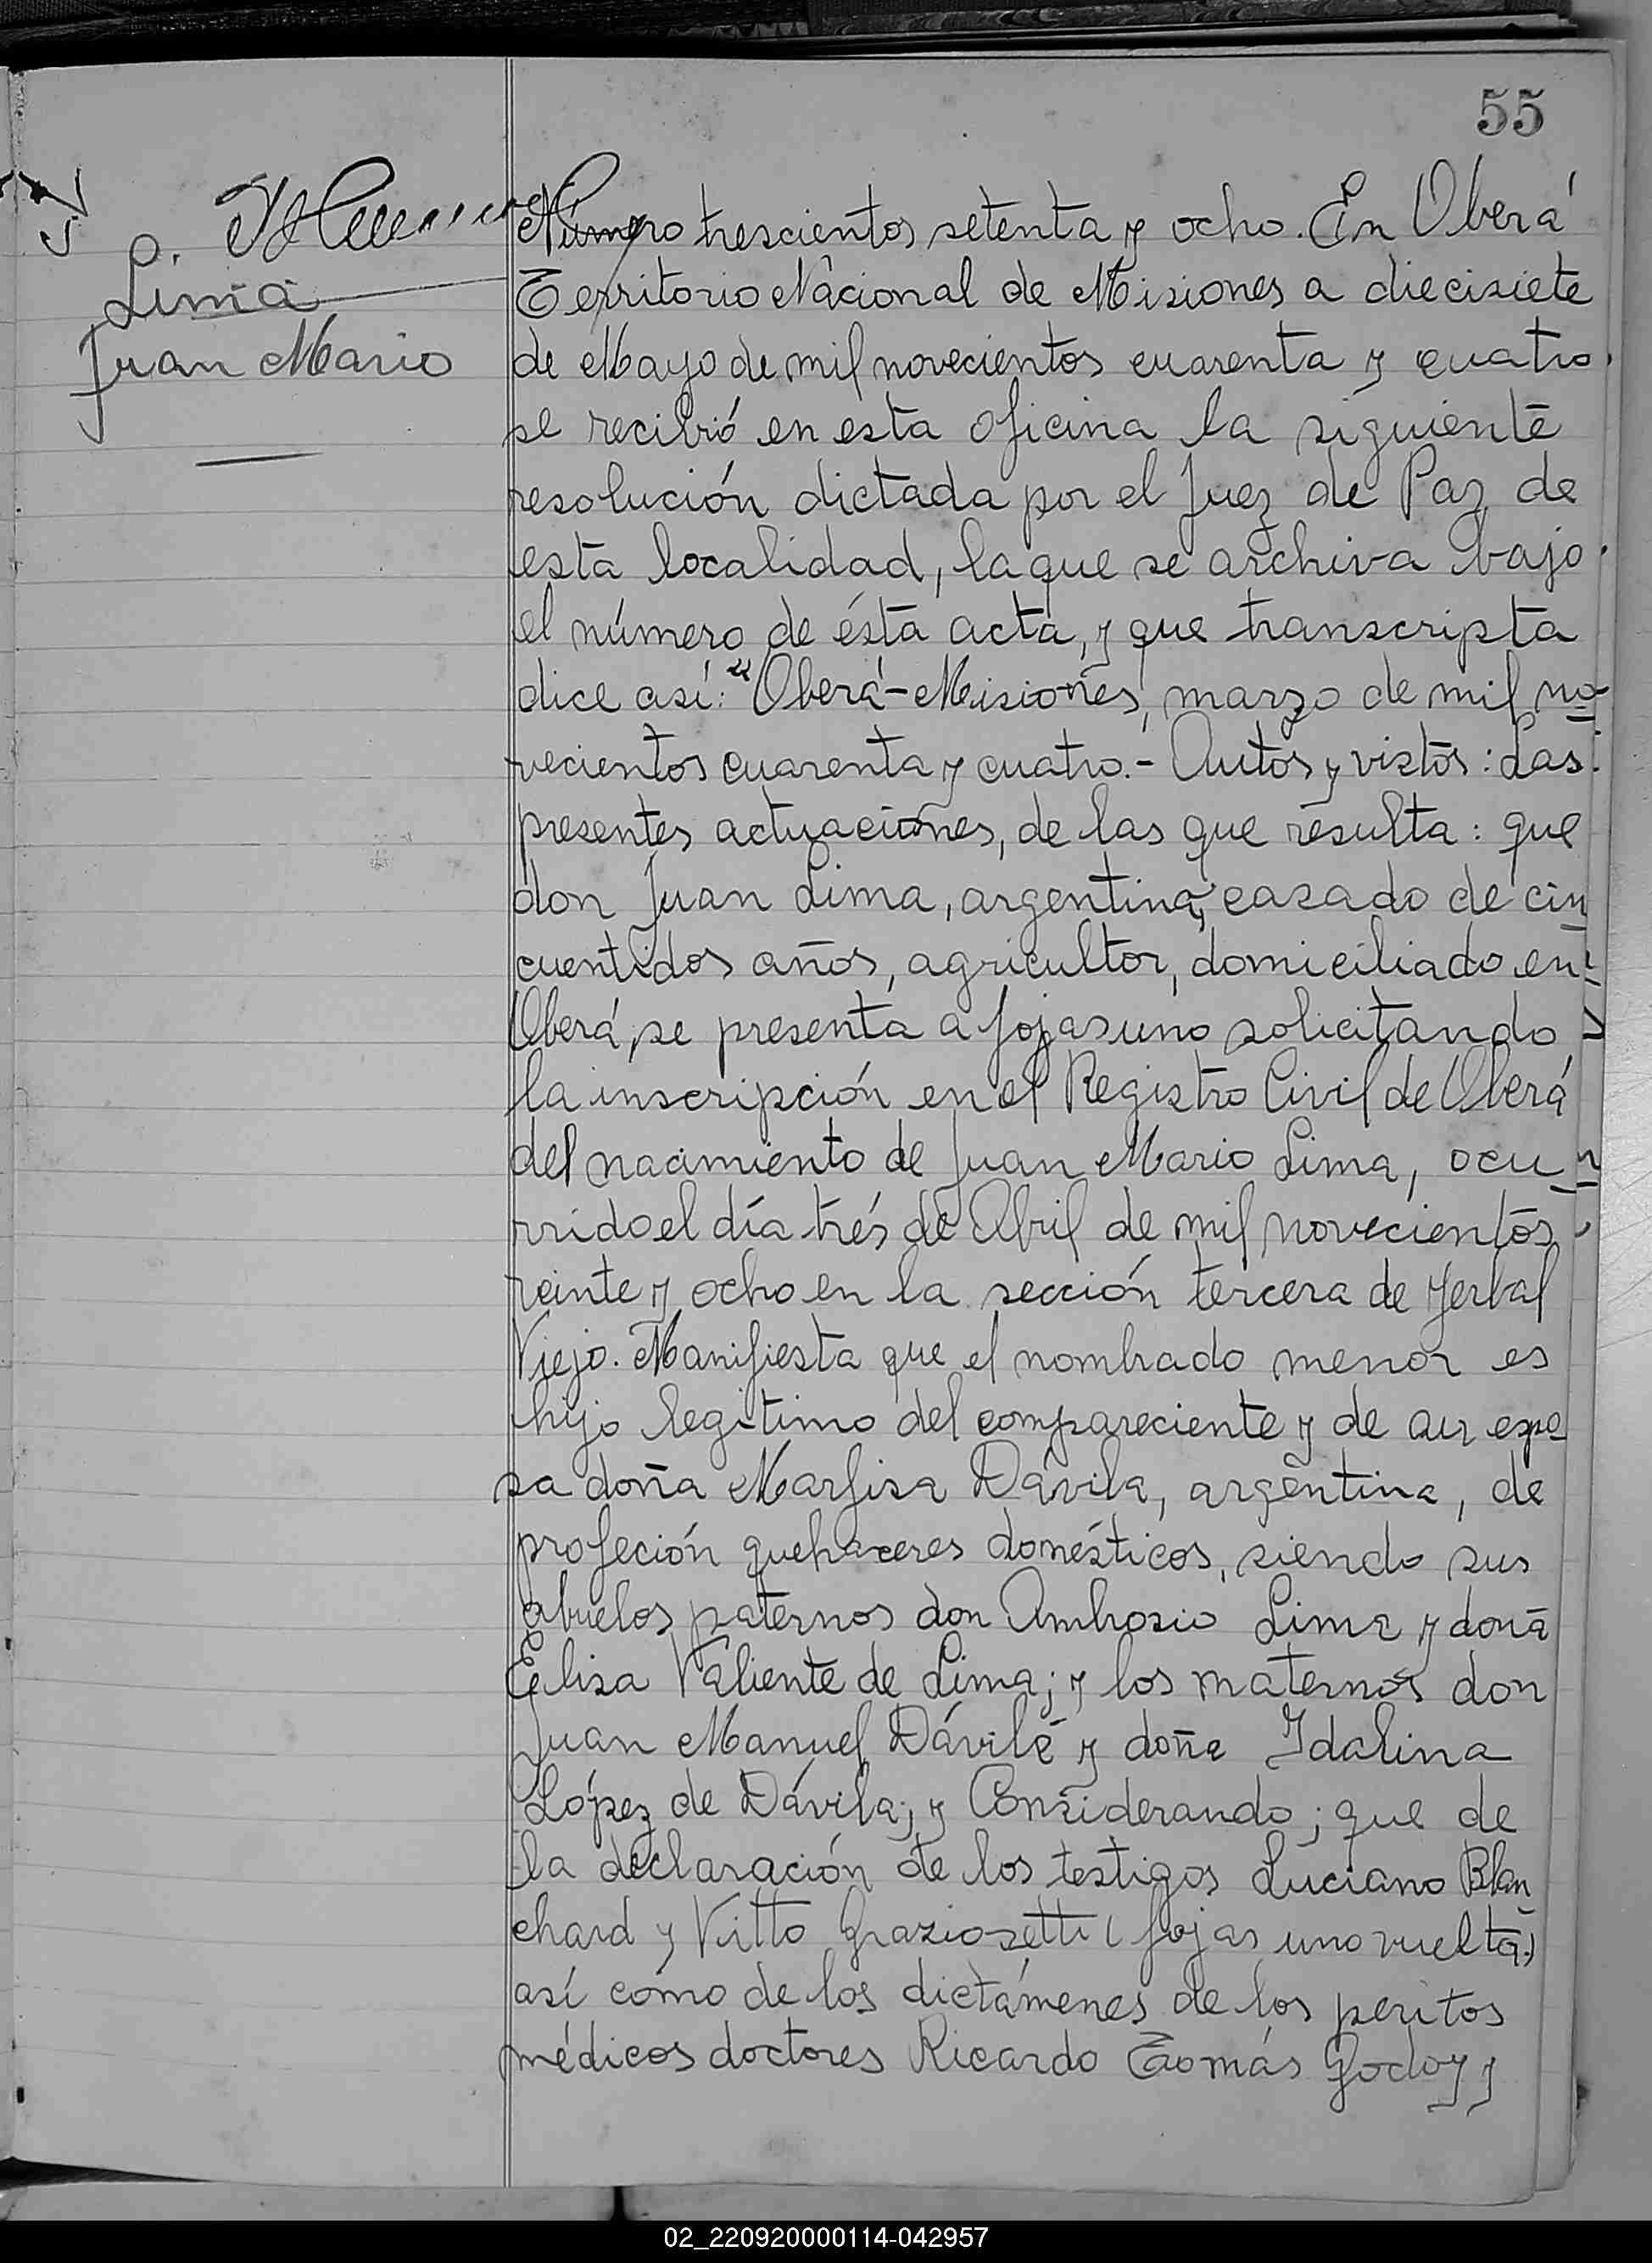 55
Lima
Juan Mario
Número trescientos setenta y ocho. En Oberá
Territorio Nacional de Misiones a diecisiete
de Mayo de mil novecientos cuarenta y cuatro
se recibió en esta oficina la siguiente
resolución dictada por el Juez de Paz de
esta localidad, la que se archiva bajo
el número de ésta acta, y que transcripta
dice así: "Oberá-Misiones, marzo de mil no-
vecientos cuarenta y cuatro.- Autos y vistos: Las
presentes actuaciones, de las que resulta: que
don Juan Lima, argentino, casado de cin
cuentidos años, agricultor, domiciliado en
Oberá, se presenta a fojas uno solicitando
la inscripción en el Registro Civil de Oberá
del nacimiento de Juan Mario Lima, ocu
rrido el día trés de Abril de mil novecientos
veinte y ocho en la sección tercera de Yerbal
Viejo. Manifiesta que el nombrado menor es
hijo legítimo del compareciente y de su espo
sa doña Marfisa Dávila, argentina, de
profeción quehaceres domésticos, siendo sus
abuelos paternos don Ambrosio Lima y doña
Elisa Valiente de Lima; y los maternos don
Juan Manuel Dávila y doña Idalina
López de Dávila; y Considerando; que de
la declaración de los testigos Luciano Blan
chard y Vitto Graziosetti (fojas uno vuelta)
así cómo de los dictámenes de los peritos
médicos doctores Ricardo Tomás Godoy y
02_220920000114-042957